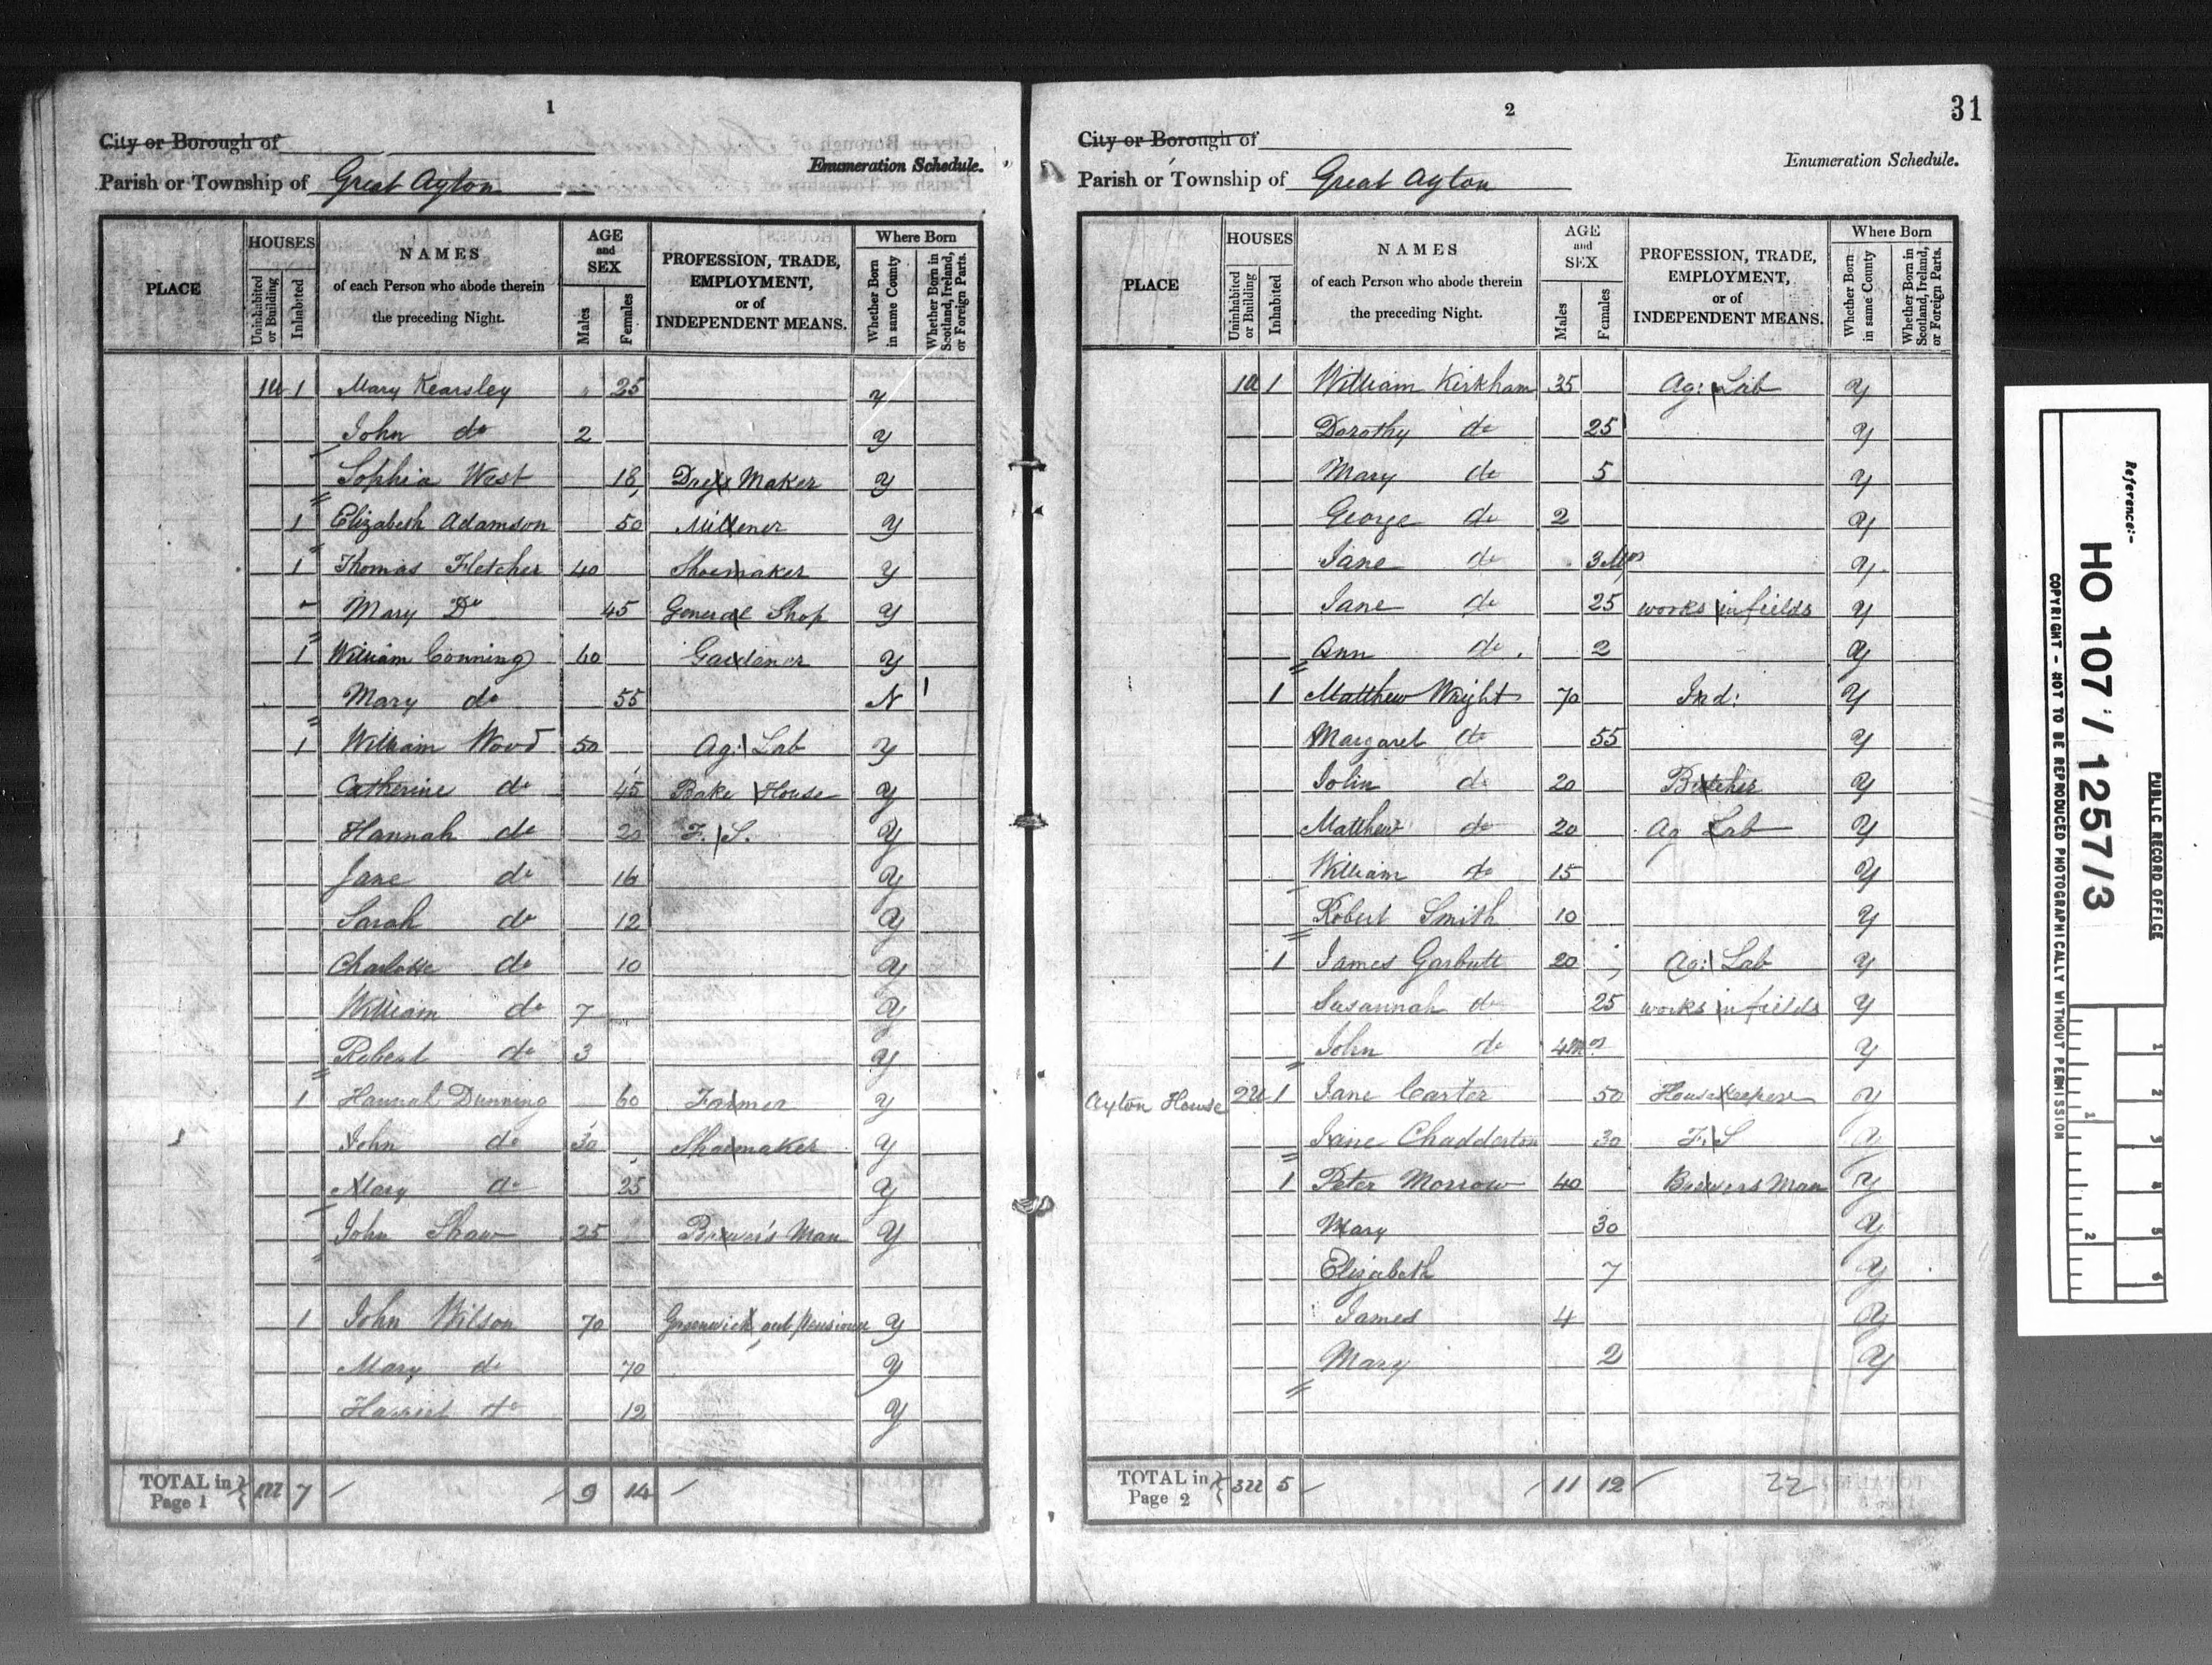 1
City or Borough of
Enumeration Schedule.
Parish or Township of Great Ayton
PLACE
HOUSES
Uninhabited or Building
Inhabited
NAMES
of each Person who abode therein
the preceding Night.
AGE
and
SEX
Males
Females
PROFESSION, TRADE,
EMPLOYMENT,
or of
INDEPENDENT MEANS.
Where Born
Whether Born in same County
Whether Born in Scotland, Ireland, or Foreign Parts.
1U 1 Mary Kearsley 25 y
John do 2 y
Sophia West 18 Dress Maker y
1 Elizabeth Adamson 50 Milliner y
1 Thomas Fletcher 40 Shoemaker y
Mary Do 45 General Shop y
1 William Conning 60 Gardener y
Mary do 55 N
1 William Wood 50 Ag: Lab y
Catherine do 45 Bake House y
Hannah do 20 F. S. y
Jane do 16 y
Sarah do 12 y
Charlotte do 10 y
William do 7 y
Robert do 3 y
1 Hannah Dunning 60 Farmer y
John do 30 Shoemaker y
Mary do 25 y
John Shaw 25 Brewer's Man y
1 John Wilson 70 Greenwich out Pensioner y
Mary do 70 y
Harriet do 12 y
TOTAL in Page 1 7 9 14
2
31
City or Borough of
Enumeration Schedule.
Parish or Township of Great Ayton
PLACE
HOUSES
Uninhabited or Building
Inhabited
NAMES
of each Person who abode therein
the preceding Night.
AGE
and
SEX
Males
Females
PROFESSION, TRADE,
EMPLOYMENT,
or of
INDEPENDENT MEANS.
Where Born
Whether Born in same County
Whether Born in Scotland, Ireland, or Foreign Parts.
1U 1 William Kirkham 35 Ag: Lab y
Dorothy do 25 y
Mary do 5 y
George do 2 y
Jane do 3 Mos y
Jane do 25 works in fields y
Ann do. 2 y
1 Matthew Wright 70 Ind: y
Margaret do 55 y
John do 20 Butcher y
Matthew do 20 Ag Lab y
William do 15 y
Robert Smith 10 y
1 James Garbutt 20 Ag: Lab y
Susannah do 25 works in fields y
John do 4 mos y
Ayton House 2U 1 Jane Carter 50 House Keeper y
Jane Chadderton 30 F. S y
1 Peter Morrow 40 Brewers Man y
Mary 30 y
Elizabeth 7 y
James 4 y
Mary 2 y
TOTAL in Page 2 3U 5 11 12 22
Reference:-
HO 107 / 1257/3
PUBLIC RECORD OFFICE
COPYRIGHT - NOT TO BE REPRODUCED PHOTOGRAPHICALLY WITHOUT PERMISSION
1
2
3
4
5
6
1
2